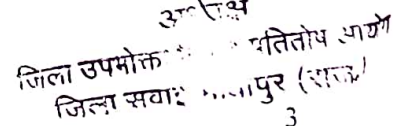 अध्यक्ष
जिला उपभोक्त प्रतितोष आयोग
जिला सवाई पुर (राज.)
3